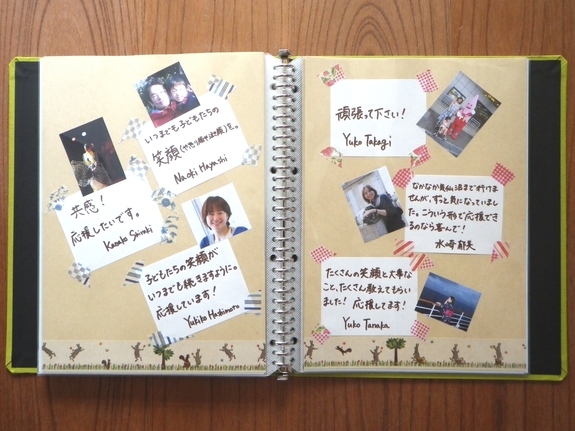 いつまでも子どもたちの
笑顔(やきつけせた顔)を。
Naoki Hayashi
共感!
応援したいです。
Kanako Shiroki
子どもたちの笑顔が
いつまでも続きますように。
応援しています!
Yukiko Hashimoto
頑張って下さい!
Yuko Takagi
なかなか気仙沼まで行けま
せんが、ずっと気になっていまし
た。こういう形で応援でき
るのなら喜んで!
水崎 郁美
たくさんの笑顔と大事な
こと、たくさん教えてもらい
ました! 応援してます!
Yuko Tanaka